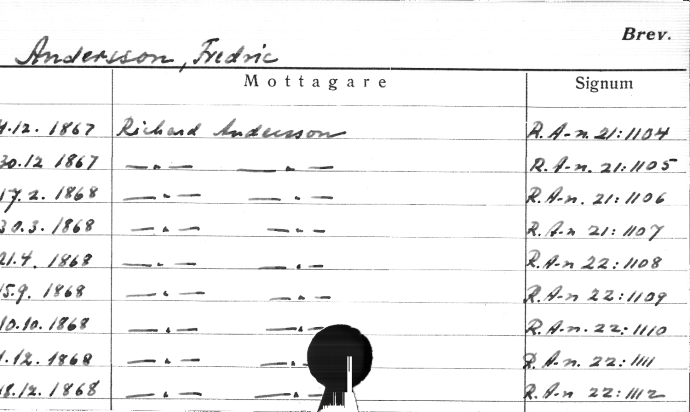 Brev.
Andersson, Fredric
Mottagare Signum
4.12. 1867 Richard Andersson R. A-n. 21:1104
30.12 1867 — " — — " — R. A-n. 21:1105
17.2. 1868 — " — — " — R. A-n. 21:1106
30.3. 1868 — " — — " — R. A-n 21:1107
21.4. 1868 — " — — " — R. A-n 22:1108
15.9. 1868 — " — — " — R. A-n 22:1109
10.10. 1868 — " — — " — R. A-n. 22:1110
1.12. 1868 — " — — " R. A-n. 22:1111
18.12. 1868 — " — — " — R. A-n 22:1112